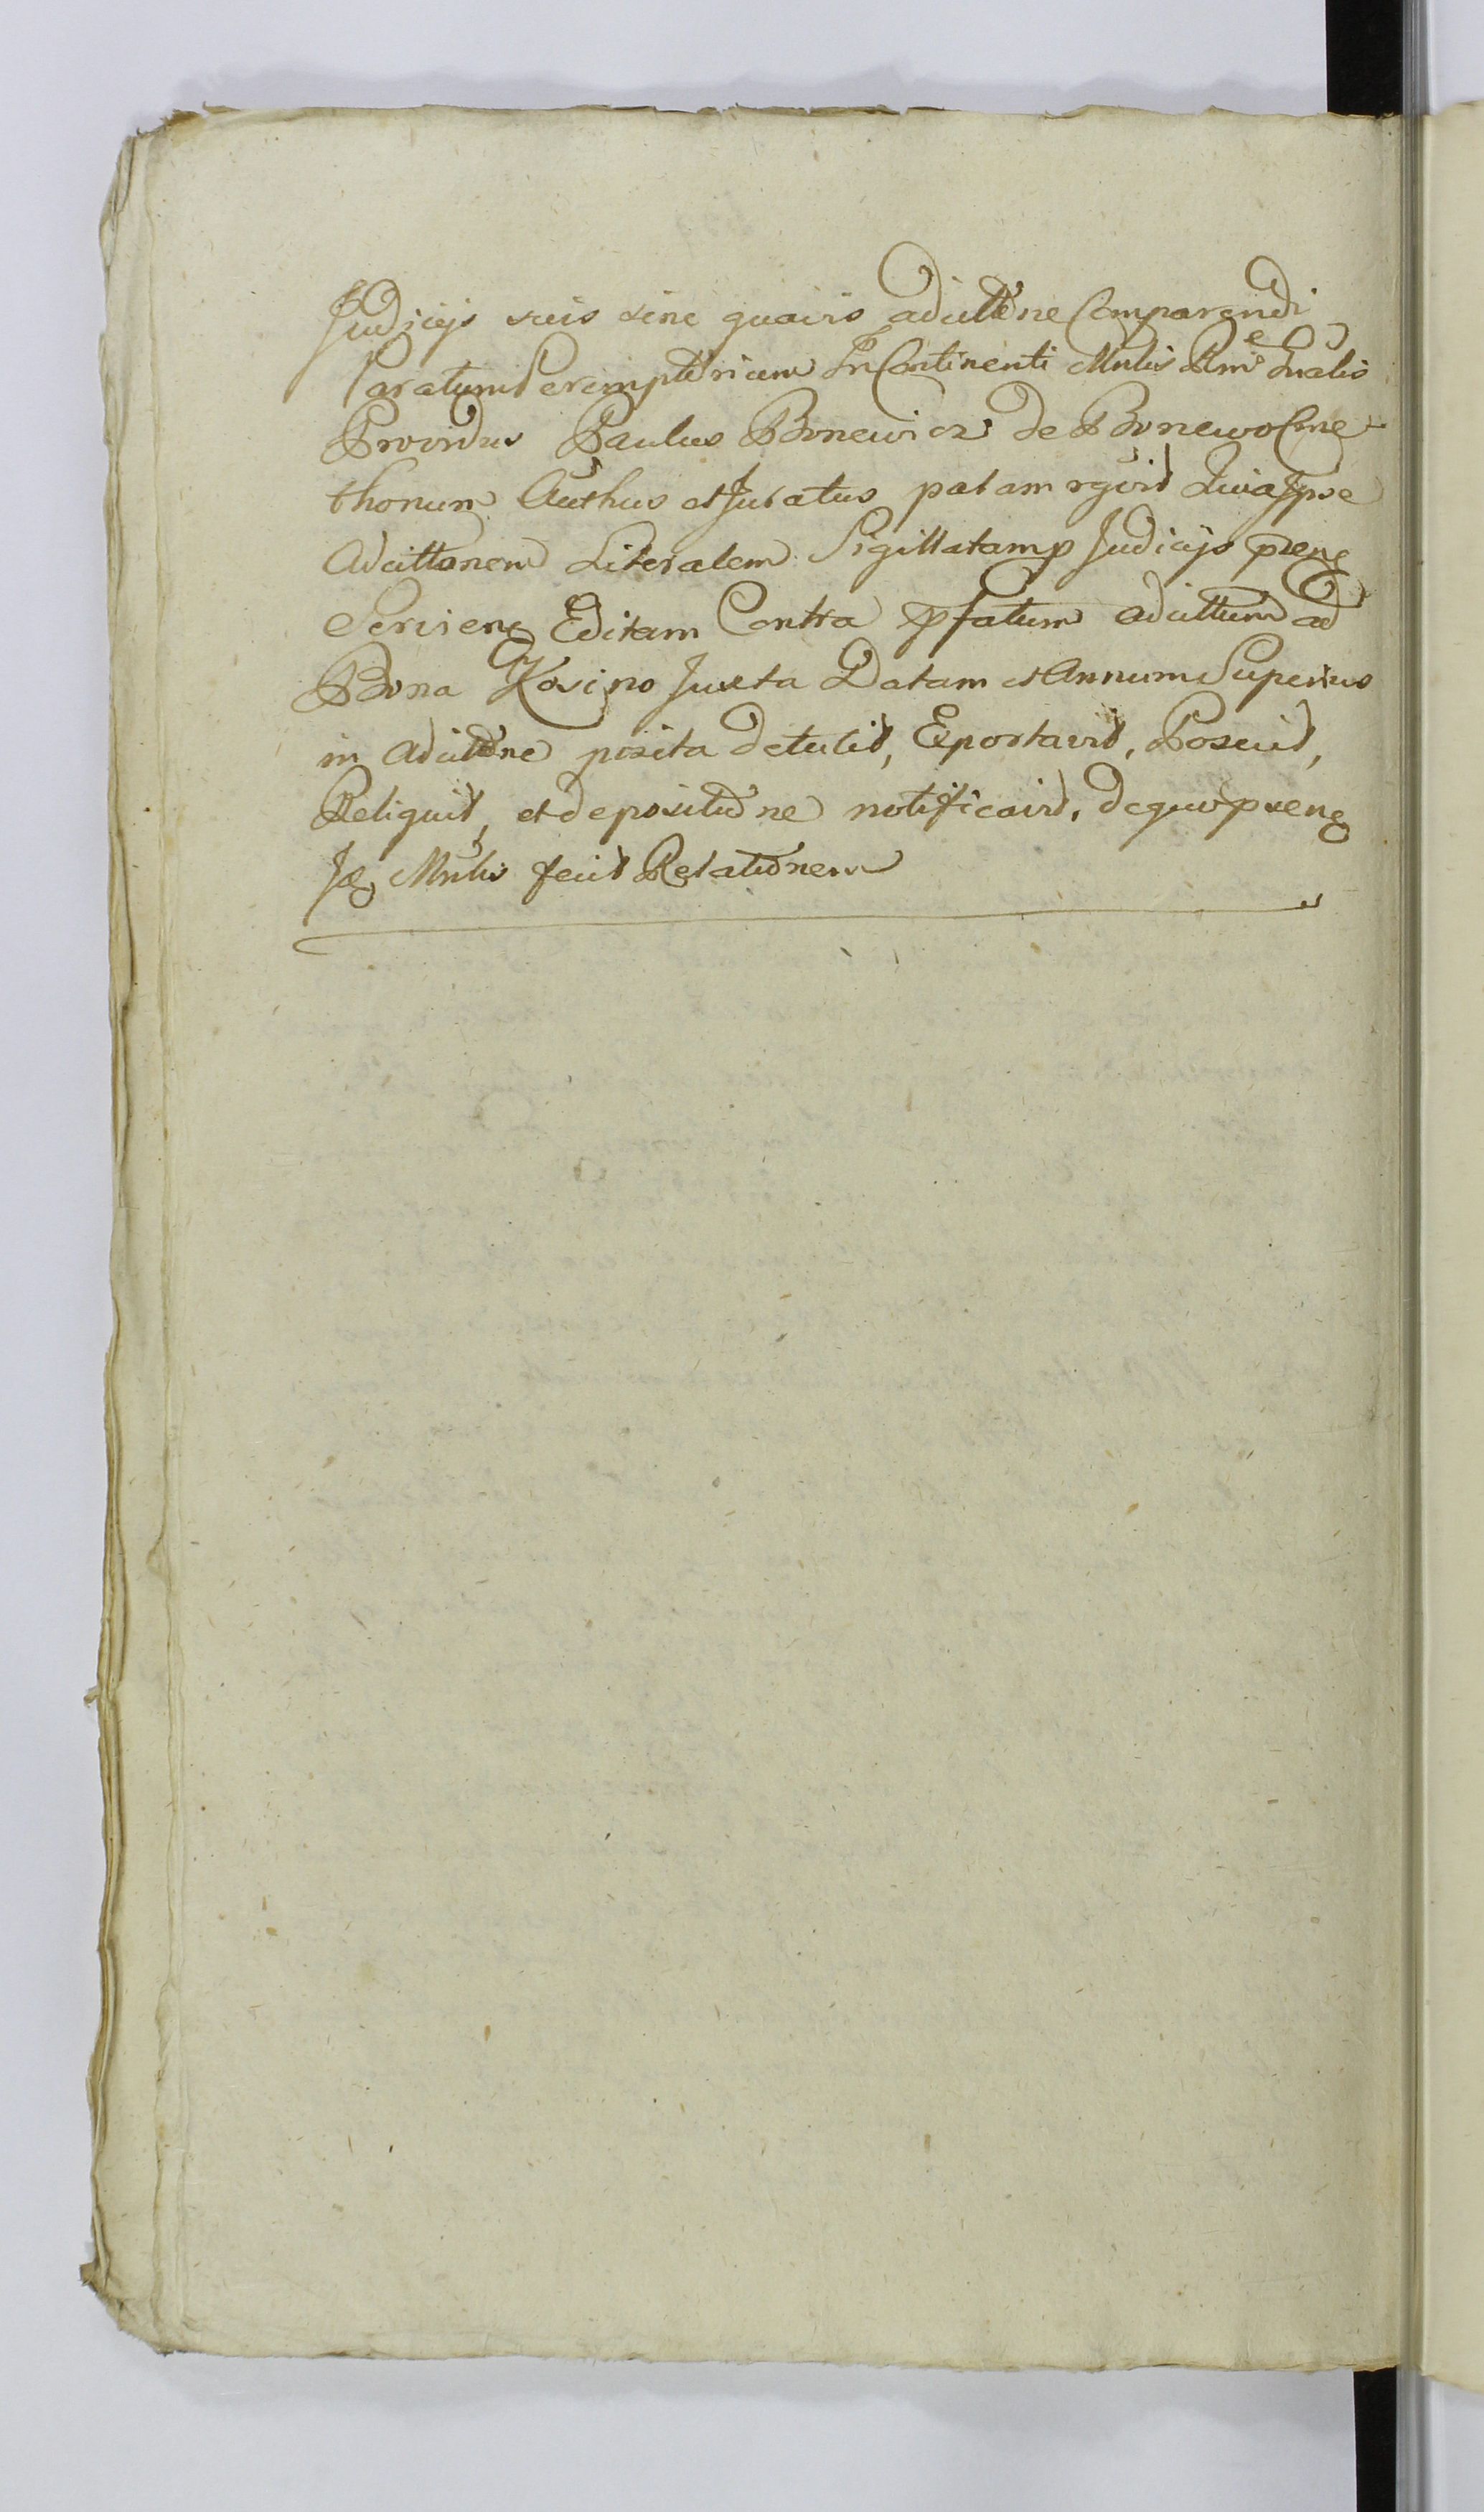 Judicijs suis sine quavis adcittõne Comparendi
Paratum Peremptorium In Continenti Mnlis Rlnis Qualis
Providus Paulus Bonewicz de Bonewo Cme
thonum Authus et Juratus palam rgvit Quia Ipse
Adcittonem Literalem Sigillatamq Judicijs prẽnq
Servienq Editam Contra pfatum adcittum ad
Bona Kosino Juxta Datam et Annum Superius
in adcittõne posita detulit, Exportavit, Posuit,
Reliquit, et depositiõne notificavit, de quo prẽnq
Jõ Mnlis fecit Relatiõnem